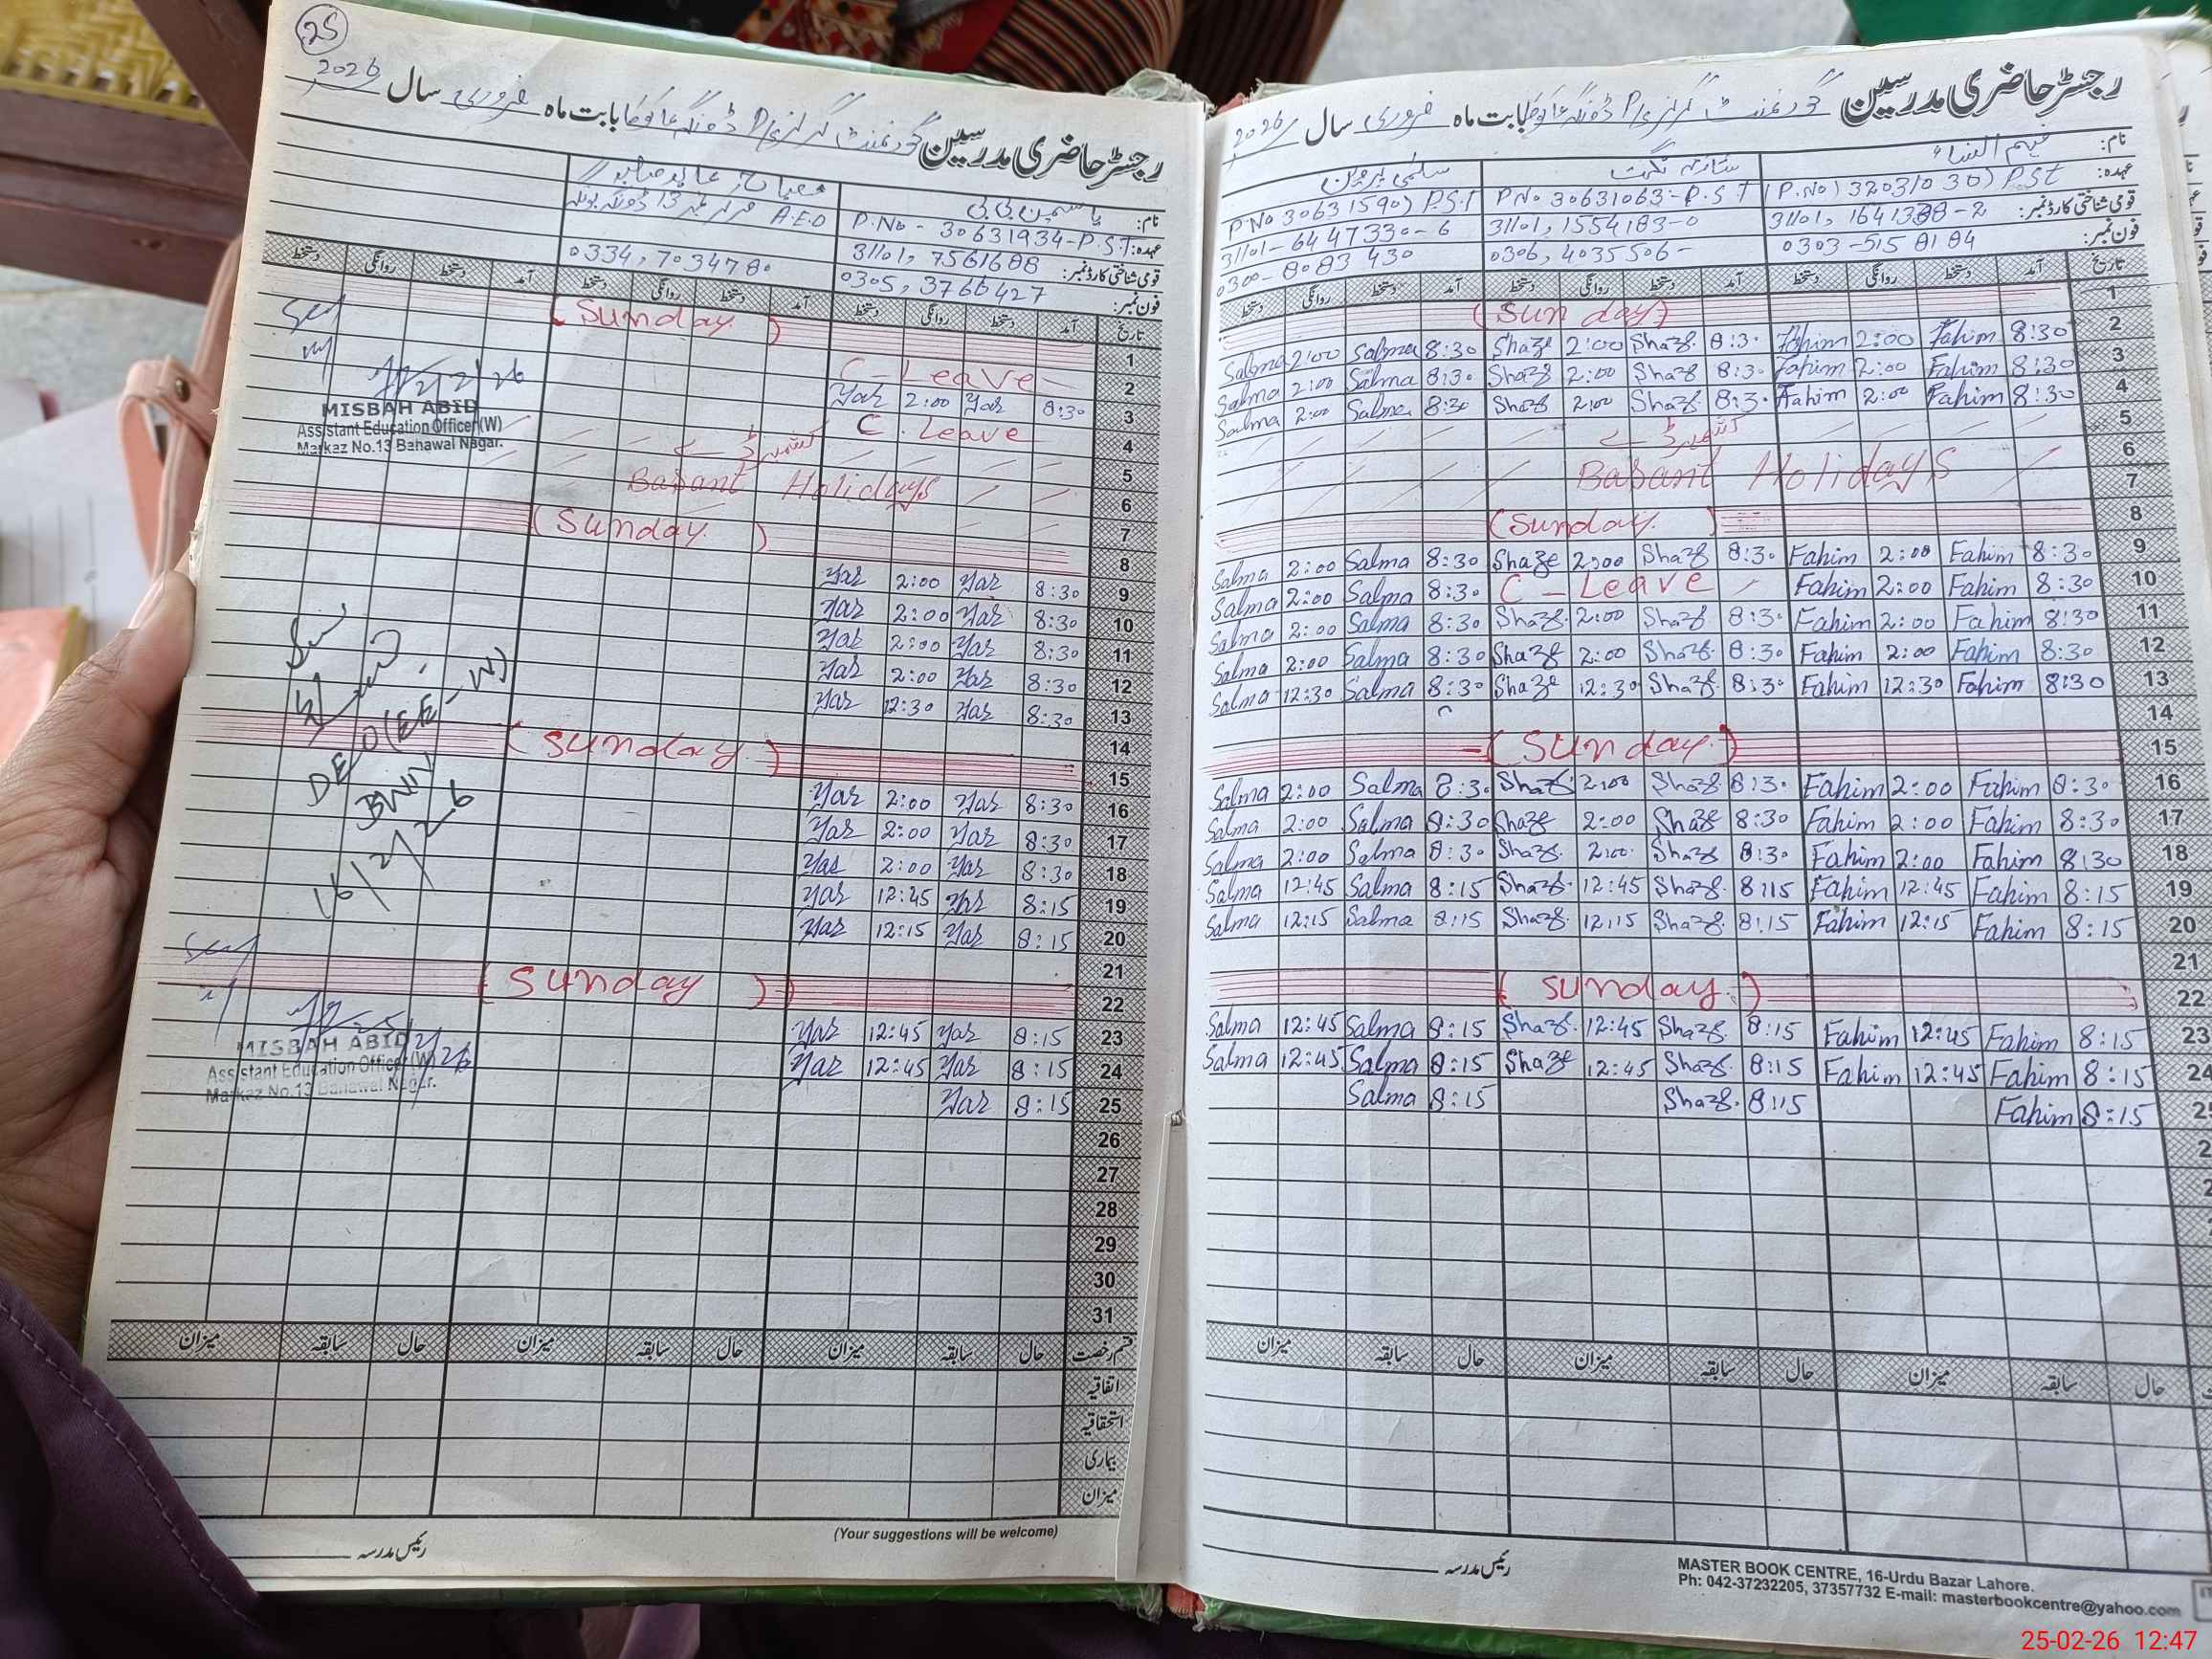 25
رجسٹر حاضری مدرسین گورنمنٹ گرلز P/S ڈونگہ بابت ماہ فروری سال 2026
نام: یاسمین بی بی
عہدہ: P.No - 30631934-P.S.T A.E.O
قومی شناختی کارڈ نمبر: 31101, 7561688
فون نمبر: 0305, 3766427 0334, 7034780
تاریخ آمد دستخط روانگی دستخط آمد دستخط روانگی دستخط آمد دستخط روانگی دستخط
1 (Sunday)
2 C-Leave
3 8:30 Yaz 2:00 Yaz
4 C.Leave
5
6 Basant Holidays
7
8 (Sunday)
9 8:30 Yaz 2:00 Yaz
10 8:30 Yaz 2:00 Yaz
11 8:30 Yaz 2:00 Yaz
12 8:30 Yaz 2:00 Yaz
13 8:30 Yaz 12:30 Yaz
14
15 (Sunday)
16 8:30 Yaz 2:00 Yaz
17 8:30 Yaz 2:00 Yaz
18 8:30 Yaz 2:00 Yaz
19 8:15 Yaz 12:45 Yaz
20 8:15 Yaz 12:15 Yaz
21
22 (Sunday)
23 8:15 Yaz 12:45 Yaz
24 8:15 Yaz 12:45 Yaz
25 8:15 Yaz
26
27
28
29
30
31
Seen
2/2/26
MISBAH ABID
Assistant Education Officer (W)
Markaz No.13 Bahawal Nagar.
DEO (EE-W)
BWN
16/2/26
Seen
25/2/26
MISBAH ABID
Assistant Education Officer (W)
Markaz No.13 Bahawal Nagar.
قسم رخصت حال سابقہ میزان حال سابقہ میزان حال سابقہ میزان
اتفاقیہ
استحقاقیہ
بیماری
میزان
(Your suggestions will be welcome)
رئیس مدرسہ
رجسٹر حاضری مدرسین گورنمنٹ گرلز P/S ڈونگہ بابت ماہ فروری سال 2026
نام: فہیم النساء سلمیٰ پروین
عہدہ: (P.No) 32031030) P.St P.No 30631063-P.S.T P.No 30631590) P.S.T
قومی شناختی کارڈ نمبر: 31101, 1554183-0 31101-6447330-6
فون نمبر: 0303-5158184 0306, 4035506- 0300-8083430
تاریخ آمد دستخط روانگی دستخط آمد دستخط روانگی دستخط آمد دستخط روانگی دستخط
1 (Sunday)
2 8:30 Fahim 2:00 Fahim 8:30 Shaz 2:00 Shaz 8:30 Salma 2:00 Salma
3 8:30 Fahim 2:00 Fahim 8:30 Shaz 2:00 Shaz 8:30 Salma 2:00 Salma
4 8:30 Fahim 2:00 Fahim 8:30 Shaz 2:00 Shaz 8:30 Salma 2:00 Salma
5
6 Basant Holidays
7
8 (Sunday)
9 8:30 Fahim 2:00 Fahim 8:30 Shaz 2:00 Shaz 8:30 Salma 2:00 Salma
10 8:30 Fahim 2:00 Fahim C-Leave 8:30 Salma 2:00 Salma
11 8:30 Fahim 2:00 Fahim 8:30 Shaz 2:00 Shaz 8:30 Salma 2:00 Salma
12 8:30 Fahim 2:00 Fahim 8:30 Shaz 2:00 Shaz 8:30 Salma 2:00 Salma
13 8:30 Fahim 12:30 Fahim 8:30 Shaz 12:30 Shaz 8:30 Salma 12:30 Salma
14
15 (Sunday)
16 8:30 Fahim 2:00 Fahim 8:30 Shaz 2:00 Shaz 8:30 Salma 2:00 Salma
17 8:30 Fahim 2:00 Fahim 8:30 Shaz 2:00 Shaz 8:30 Salma 2:00 Salma
18 8:30 Fahim 2:00 Fahim 8:30 Shaz 2:00 Shaz 8:30 Salma 2:00 Salma
19 8:15 Fahim 12:45 Fahim 8:15 Shaz 12:45 Shaz 8:15 Salma 12:45 Salma
20 8:15 Fahim 12:15 Fahim 8:15 Shaz 12:15 Shaz 8:15 Salma 12:15 Salma
21
22 (Sunday)
23 8:15 Fahim 12:45 Fahim 8:15 Shaz 12:45 Shaz 8:15 Salma 12:45 Salma
24 8:15 Fahim 12:45 Fahim 8:15 Shaz 12:45 Shaz 8:15 Salma 12:45 Salma
25 8:15 Fahim 8:15 Shaz 8:15 Salma
حال سابقہ میزان حال سابقہ میزان حال سابقہ میزان
رئیس مدرسہ
MASTER BOOK CENTRE, 16-Urdu Bazar Lahore.
Ph: 042-37232205, 37357732 E-mail: masterbookcentre@yahoo.com
25-02-26 12:47